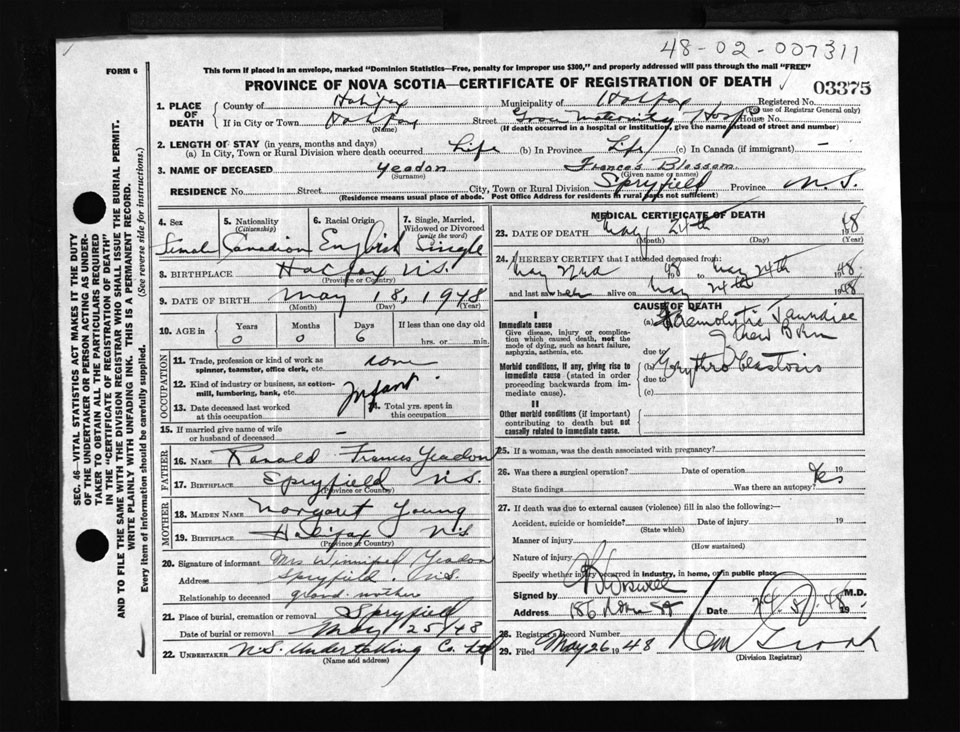 48-02-007311
FORM 6
This form if placed in an envelope, marked "Dominion Statistics—Free, penalty for improper use $300," and properly addressed will pass through the mail "FREE"
PROVINCE OF NOVA SCOTIA—CERTIFICATE OF REGISTRATION OF DEATH
03375
1. PLACE OF DEATH
County of Halifax Municipality of Halifax Registered No.
(For use of Registrar General only)
If in City or Town Halifax Street Grace Maternity Hosp House No.
(Name) (If death occurred in a hospital or institution, give the name instead of street and number)
2. LENGTH OF STAY (in years, months and days)
(a) In City, Town or Rural Division where death occurred Life (b) In Province Life (c) In Canada (if immigrant) —
3. NAME OF DECEASED Yeadon Frances Blossom
(Surname) (Given name or names)
RESIDENCE No. Street City, Town or Rural Division Spryfield Province N.S.
(Residence means usual place of abode. Post Office Address for residents in rural parts not sufficient)
4. Sex 5. Nationality (Citizenship) 6. Racial Origin 7. Single, Married, Widowed or Divorced (write the word)
Canadian English Single
8. BIRTHPLACE Halifax N.S.
(Province or Country)
9. DATE OF BIRTH May 18, 1948
(Month) (Day) (Year)
10. AGE in Years Months Days If less than one day old
0 0 6 hrs. or min.
OCCUPATION
11. Trade, profession or kind of work as spinner, teamster, office clerk, etc. none
12. Kind of industry or business, as cotton-mill, lumbering, bank, etc. Infant
13. Date deceased last worked at this occupation 14. Total yrs. spent in this occupation
15. If married give name of wife or husband of deceased —
FATHER
16. NAME Ronald Frances Yeadon
17. BIRTHPLACE Spryfield N.S.
(Province or Country)
MOTHER
18. MAIDEN NAME Margaret Young
19. BIRTHPLACE Halifax N.S
(Province or Country)
20. Signature of informant Mrs Winnifred Yeadon
Address Spryfield. N.S.
Relationship to deceased grand mother
21. Place of burial, cremation or removal Spryfield
Date of burial or removal May 25/48
22. UNDERTAKER N.S. Undertaking Co. Ltd
(Name and address)
MEDICAL CERTIFICATE OF DEATH
23. DATE OF DEATH May 24th 1948
(Month) (Day) (Year)
24. I HEREBY CERTIFY that I attended deceased from
May 1948 to May 24th 1948
and last saw h alive on May 24th 1948
CAUSE OF DEATH
I
Immediate cause (a) Haemolytic Jaundice
Give disease, injury or complication which caused death, not the mode of dying, such as heart failure, asphyxia, asthenia, etc.
of new Born
due to
Morbid conditions, if any, giving rise to immediate cause (stated in order proceeding backwards from immediate cause).
(b) Erythroblastosis
due to
(c)
II
Other morbid conditions (if important) contributing to death but not causally related to immediate cause.
25. If a woman, was the death associated with pregnancy?
26. Was there a surgical operation? Date of operation 19
State findings Was there an autopsy? Yes
27. If death was due to external causes (violence) fill in also the following:—
Accident, suicide or homicide? Date of injury 19
(State which)
Manner of injury
(How sustained)
Nature of injury
Specify whether injury occurred in industry, in home, or in public place
Signed by M.D.
Address 186 Date 24 48 19
28. Registrar's Record Number
29. Filed May 26 1948
(Division Registrar)
SEC. 46—VITAL STATISTICS ACT MAKES IT THE DUTY OF THE UNDERTAKER OR PERSON ACTING AS UNDERTAKER TO OBTAIN ALL THE PARTICULARS REQUIRED IN THE "CERTIFICATE OF REGISTRATION OF DEATH" AND TO FILE THE SAME WITH THE DIVISION REGISTRAR WHO SHALL ISSUE THE BURIAL PERMIT.
WRITE PLAINLY WITH UNFADING INK. THIS IS A PERMANENT RECORD.
Every item of information should be carefully supplied. (See reverse side for instructions.)